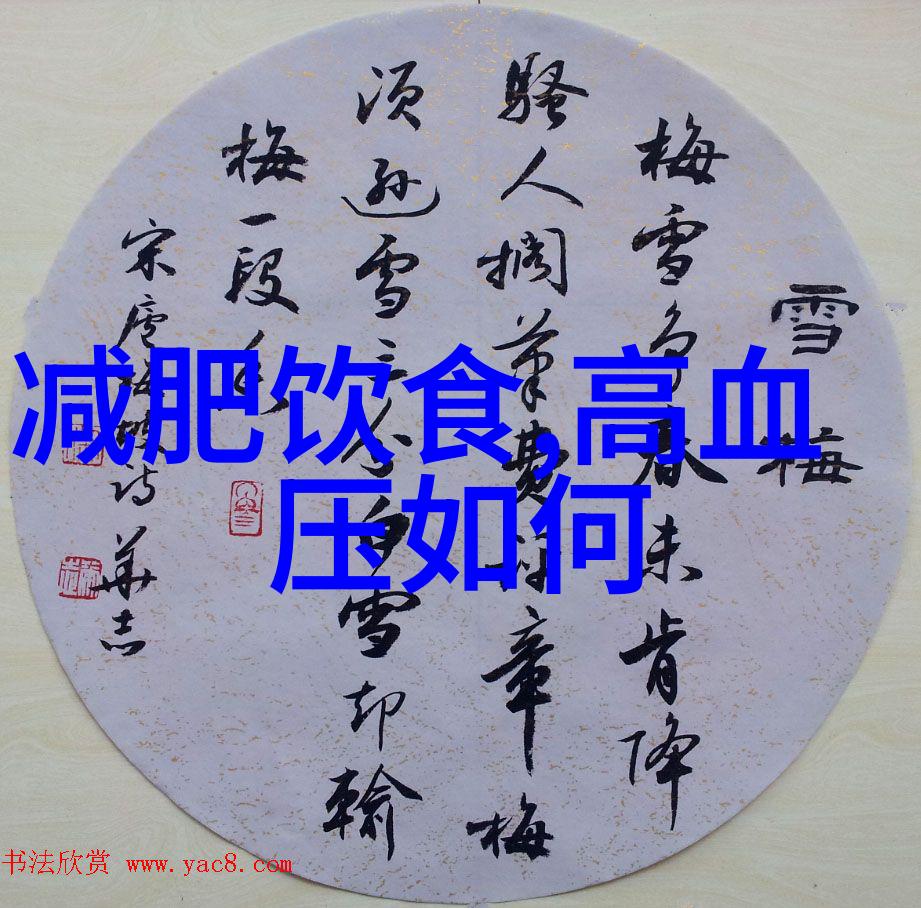 减肥饮食,高血
压如何
雪梅
梅雪争春未肯降
騷人擱筆費评章梅
须逊雪三分白雪却輸
梅一段香
宋廬梅坡诗 華志
书法欣赏 www.yac8.com